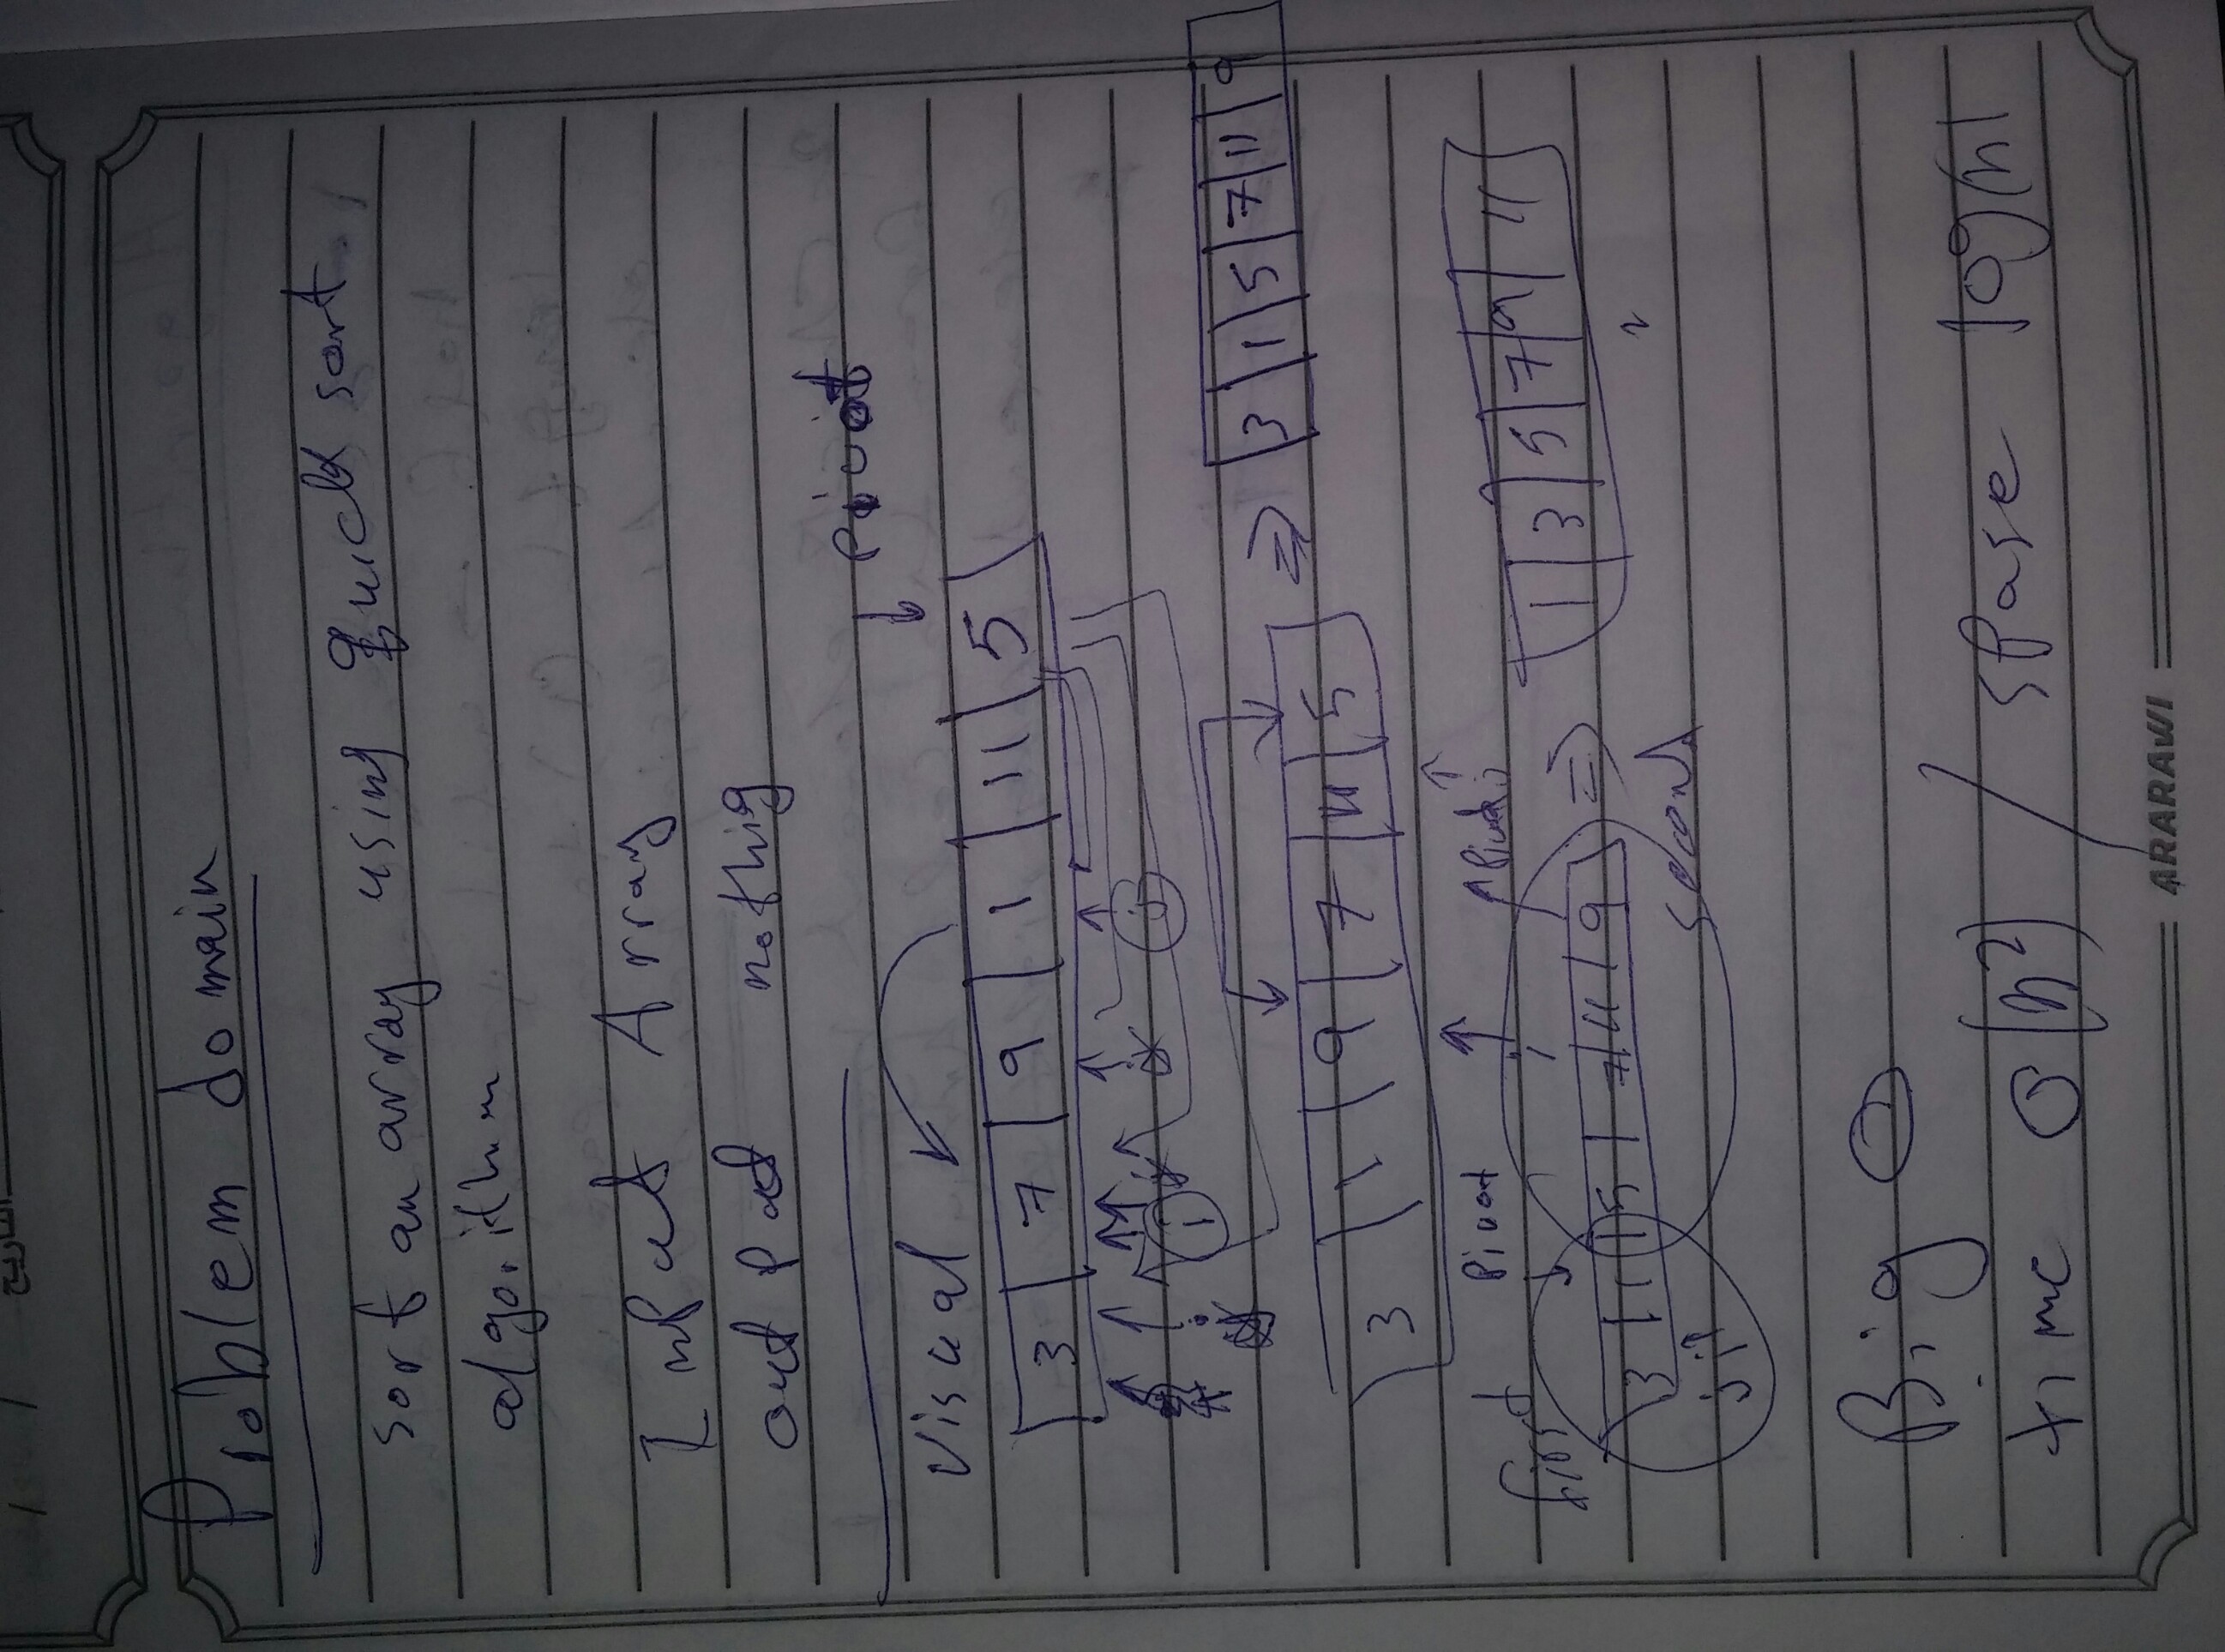 Problem domain
sort an array using quick sort
algorithm
Input Array
out put nothig
Pivot
Visual
3 | 7 | 9 | 1 | 11 | 5
i j
3 | 1 | 9 | 7 | 11 | 5 ⇒ 3 | 1 | 5 | 7 | 11 | 9
first Pivot Pivot
3 | 1 | 5 | 7 | 11 | 9 ⇒ 1 | 3 | 5 | 7 | 9 | 11
j i
second
Big O
time O(n²) / spase log(n)
ARARAWI